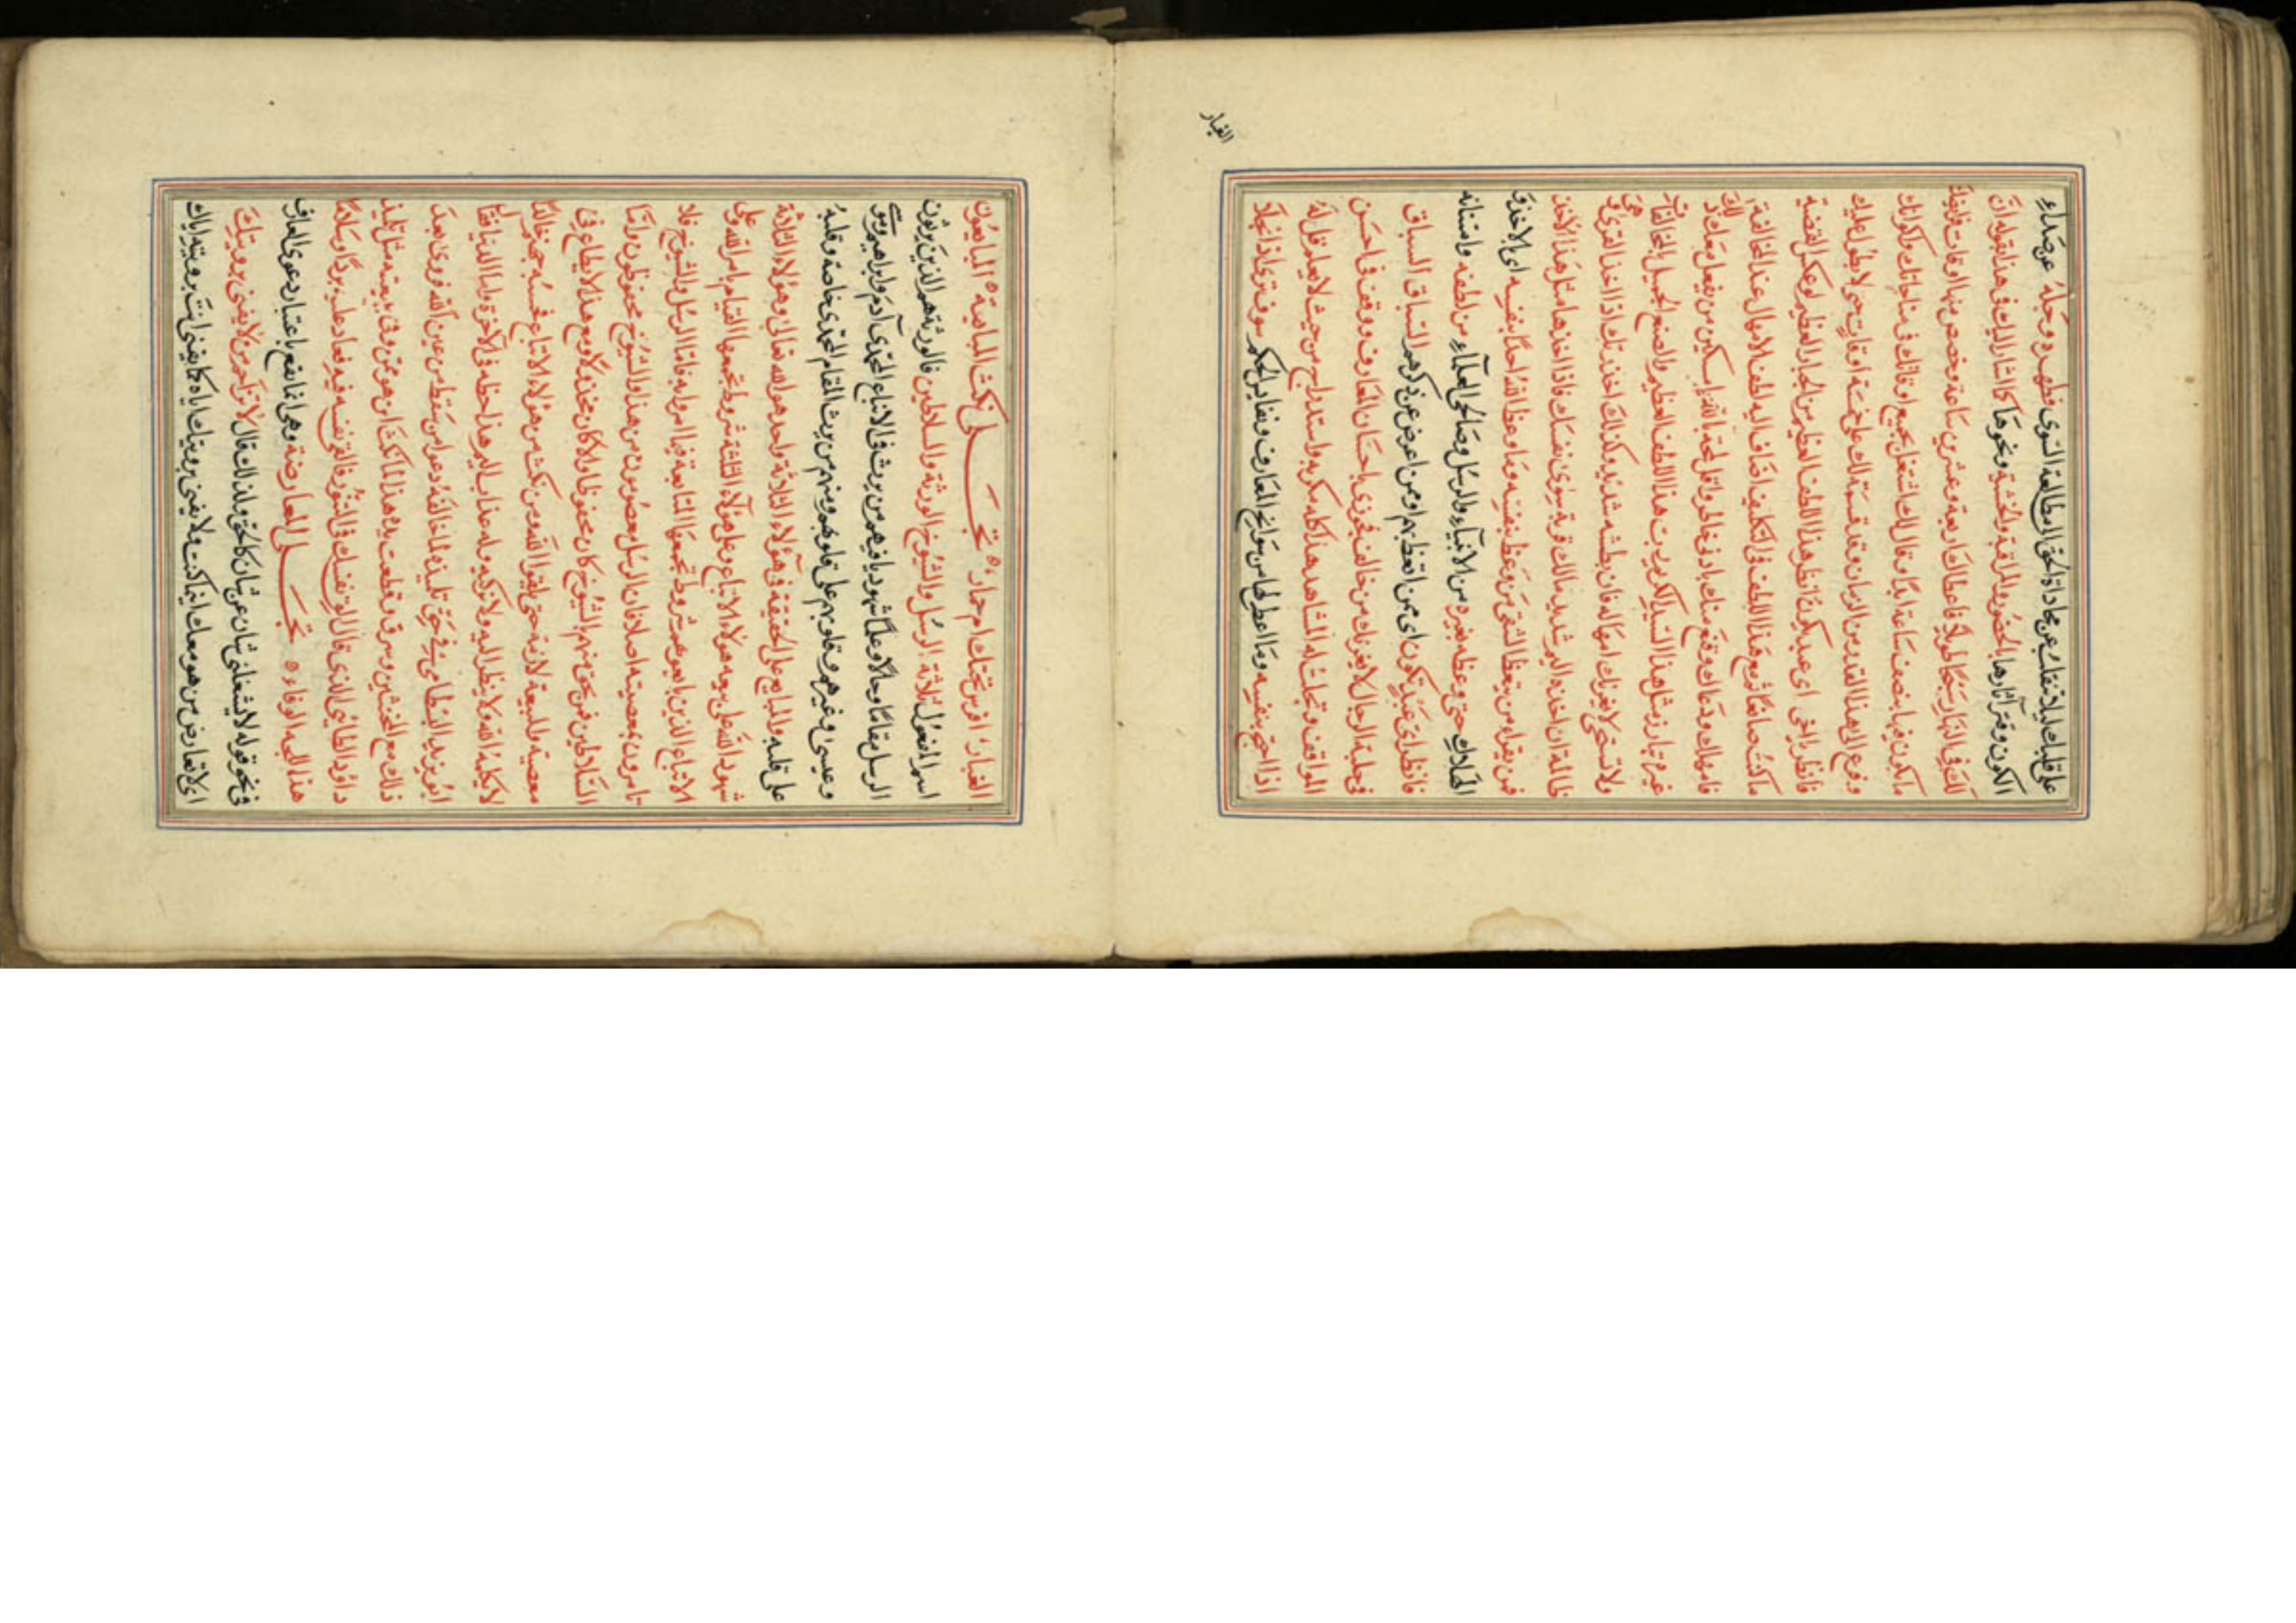 على قلبك ليلا تغفل عن محاداة الحق المطالعة السوى فطهره وحله عن صداء
الكون وقترآثارها بالحضور والمراقبة والخشية ونحوها كما اشار اليك في هذا بقوله ان
لك في النهار سبحا طويلا فاعطاك اربعة وعشرين ساعة وخصص منها اوقات
ما يكون فيها نصف ساعة ابدا وقال لك اشتغل بجميع اوقاتك في مباحاتك وكوناتك
وفرع الى هذا القدر من الزمان وقد قسمته لك على خمسة اوقات حتى لا يطول عليك
فانظر يا اخي اى عبد يكون انظر هذا اللطف العظيم من الجبار العظيم لو عكس القضية
ما كنت صانعا ثم مع هذا اللطف في التكليف اضاف اليه لطف الامهال عند المخالفة
فامهلك ودعاك وقنع منك بادنى خاطر واقل لمحة بالله يا مسكين من يفعل معك ذلك
غيره تبارز مثل هذا السيد الكريم رب هذا اللطف العظيم والصنع الجميل بالمخالفات
ولا تستحي لا يغرنك امهاله فان بطشه شديد وكذلك اخذ ربك اذا اخذ القرى وهي
ظالمة ان اخذه اليم شديد مالك قرية سوى نفسك فاذا اخذها مثل هذا الاخذ
فمن يقراء من يتعظ الشقي من وعظ بنفسه وما وعظ الله احدا بنفسه اى بالاخذ
الهلاك حتى وعظه بغيره من الانبياء والرسل وصالحى العلماء من لطفه وامتنانه
فانظر اى عبد تكون اى ممن اتعظ بهم او ممن اعرض عن ذكرهم السباق السباق
في حلبة الرجال لا يغرنك من خالف فجوزى باحسان المعارف ووقف في احسن
المواقف وتجلت له المشاهد هذا كله مكر به واستدراج من حيث لا يعلم قل له
اذا احتج بنفسه وما اعطى لها من سوانح المعارف ونفايس الحكم سوف ترى اذا انجلا
الغبار
الغبار افرس تحتك ام حمار تجلى نكث المبايعة المبايعون
اسم المفعول ثلاثة الرسل والشيوخ الورثة والسلاطين فالورثة هم الذين يرثون
الرسل مقاما وحالا وعلما شهوديا فيهم من يرث في الاتباع المحمدى آدم وابراهيم وموسى
وعيسى وغيرهم وقلوبهم على قلوبهم ومنهم من يرث المقام المحمدى خاصة وقلبه
على قلبه والمبايع على الحقيقة في هؤلاء الثلاثة واحد هو الله تعالى وهؤلاء الثلاثة
شهود الله على بيعة هؤلاء الاتباع وعلى هؤلاء الثلثة شروط تجمعها القيام بامر الله وعلى
الاتباع الذين بايعوهم شروط تجمعها المتابعة فيما امروا به فاما الرسل والشيوخ فلا
يامرون بمعصية اصلا فان الرسل معصومون من هذا والشيوخ محفوظون واما
السلاطين فمن لحق منهم بالشيوخ كان محفوظا والا كان مخذولا ومع هذا لا يطاع في
معصية والبيعة لازمة حتى يلقوا الله ومن نكث من هؤلاء الاتباع فحسبه جهنم خالدا
لا يكلمه الله ولا ينظر اليه ولا يزكيه وله عذاب اليم هذا حظه في الآخرة واما الدنيا فقد
ابو يزيد البسطامى في حق تلميذه لما خالفه دعوا من سقط من عين الله فروى بعد
ذلك مع المخنثين وسرق وقطعت يده هذا لما نكث اين هو ممن وفى بيعته مثل تلميذ
داود الطائى الذى قال له الق نفسك في التنور فالقى نفسه فيه فعاد عليه بردا وسلاما
هذا نتيجة الوفاء تجلى المعارضة وهي انما تقع باعتبار دعوى العارف
في نحو قوله لا يشغلني شان عن شان كالحق ولذلك قال لا تزاحم من لا يفنى برويتك
اى لا تعارض من هو معك اينما كنت ولا يفنى برويتك اياه كما يفنى انت برويته اياك